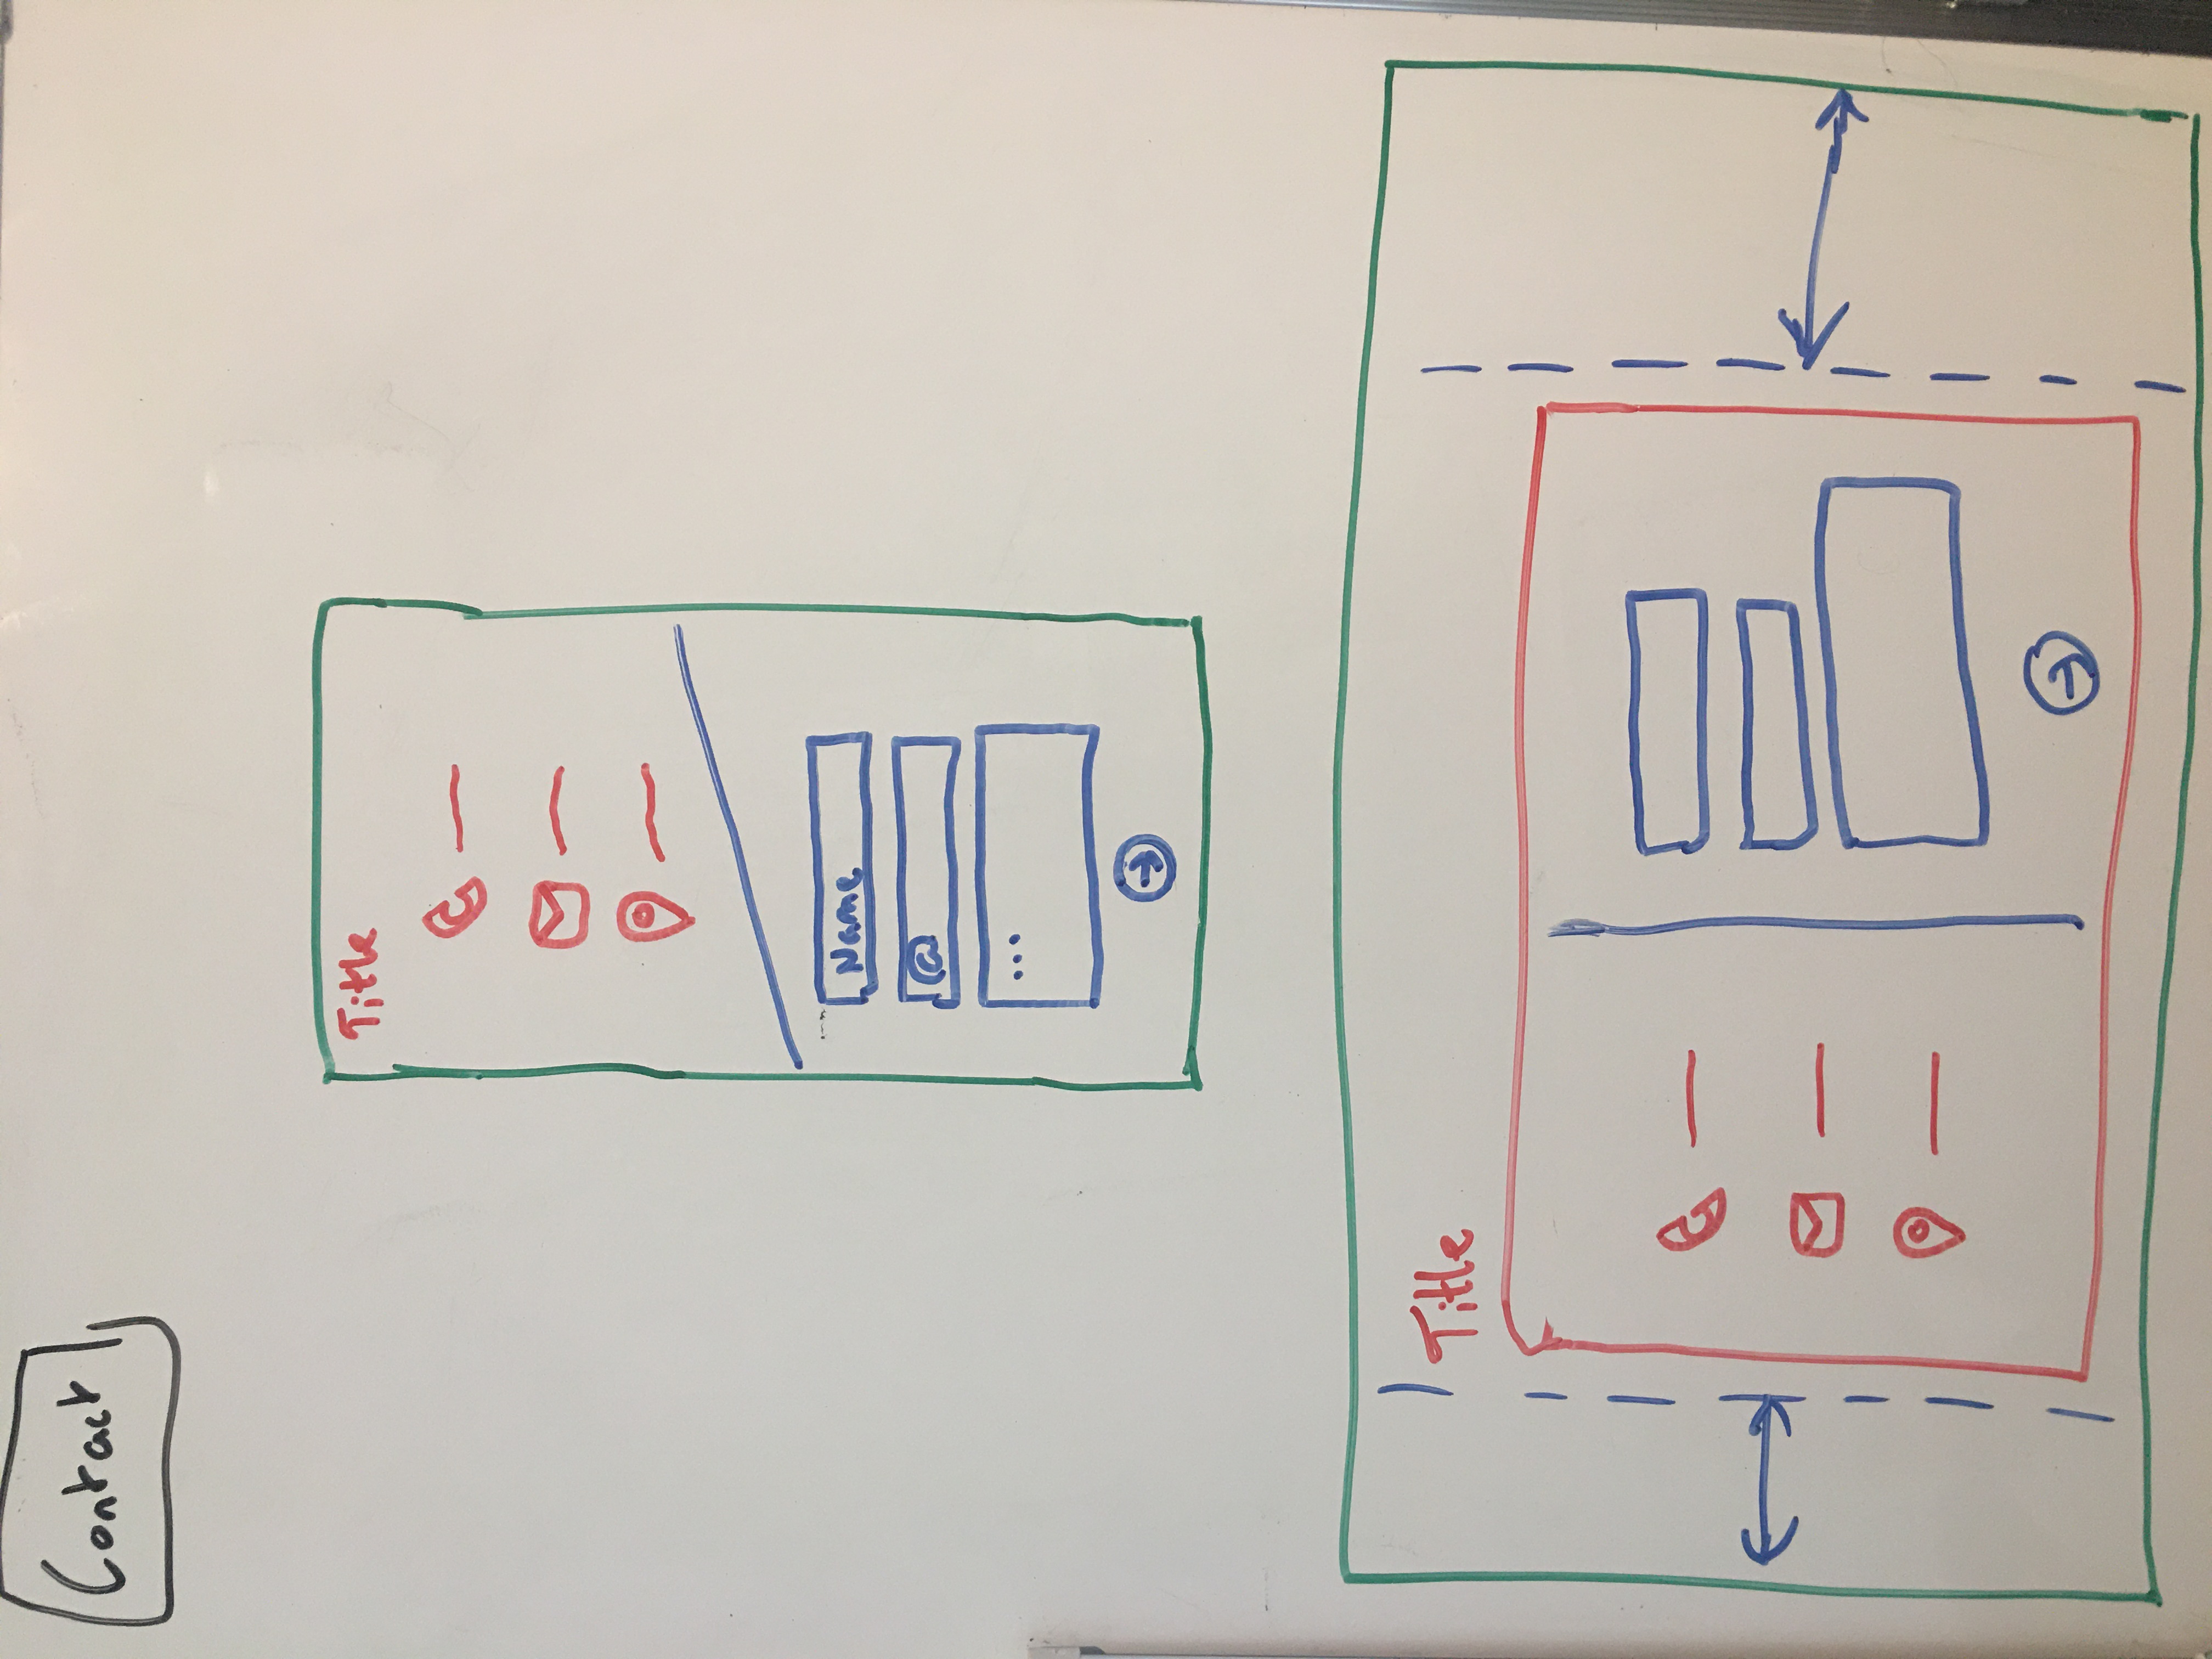 Contact
Title
Name
@
...
Title